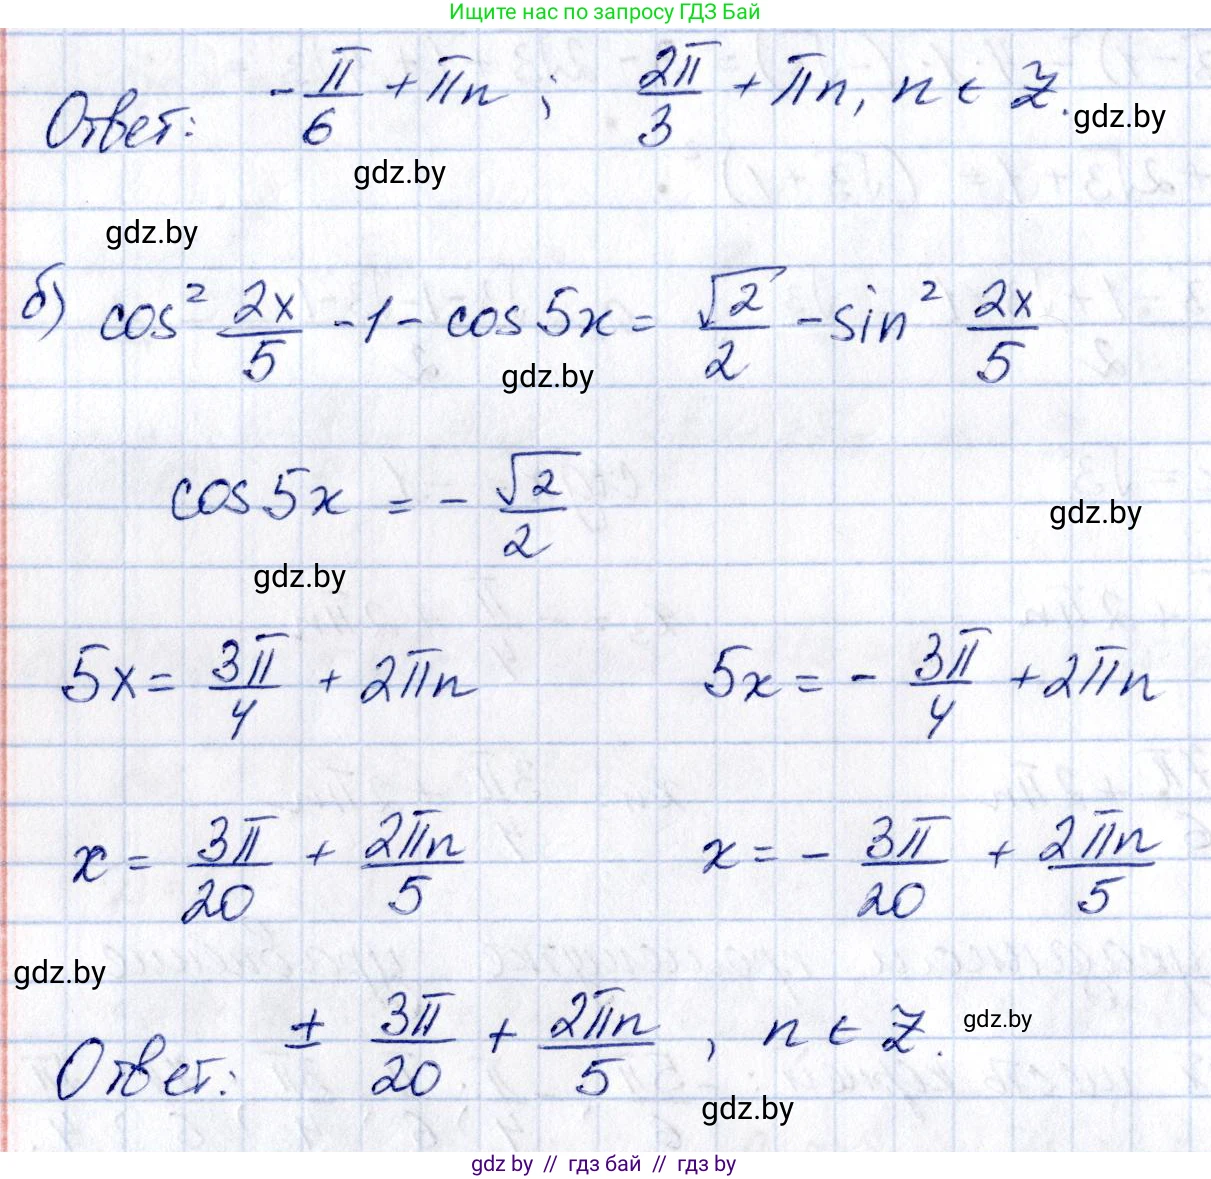 Ищите нас по запросу ГДЗ Бай
Ответ: -π/6 + πn ; 2π/3 + πn, n ∈ Z.
gdz.by
gdz.by
gdz.by
б) cos² 2x/5 - 1 - cos 5x = √2/2 - sin² 2x/5
gdz.by
cos 5x = - √2/2
gdz.by
gdz.by
5x = 3π/4 + 2πn 5x = - 3π/4 + 2πn
x = 3π/20 + 2πn/5 x = - 3π/20 + 2πn/5
gdz.by
Ответ: ± 3π/20 + 2πn/5 , n ∈ Z.
gdz.by
gdz.by
gdz by // гдз бай // гдз by